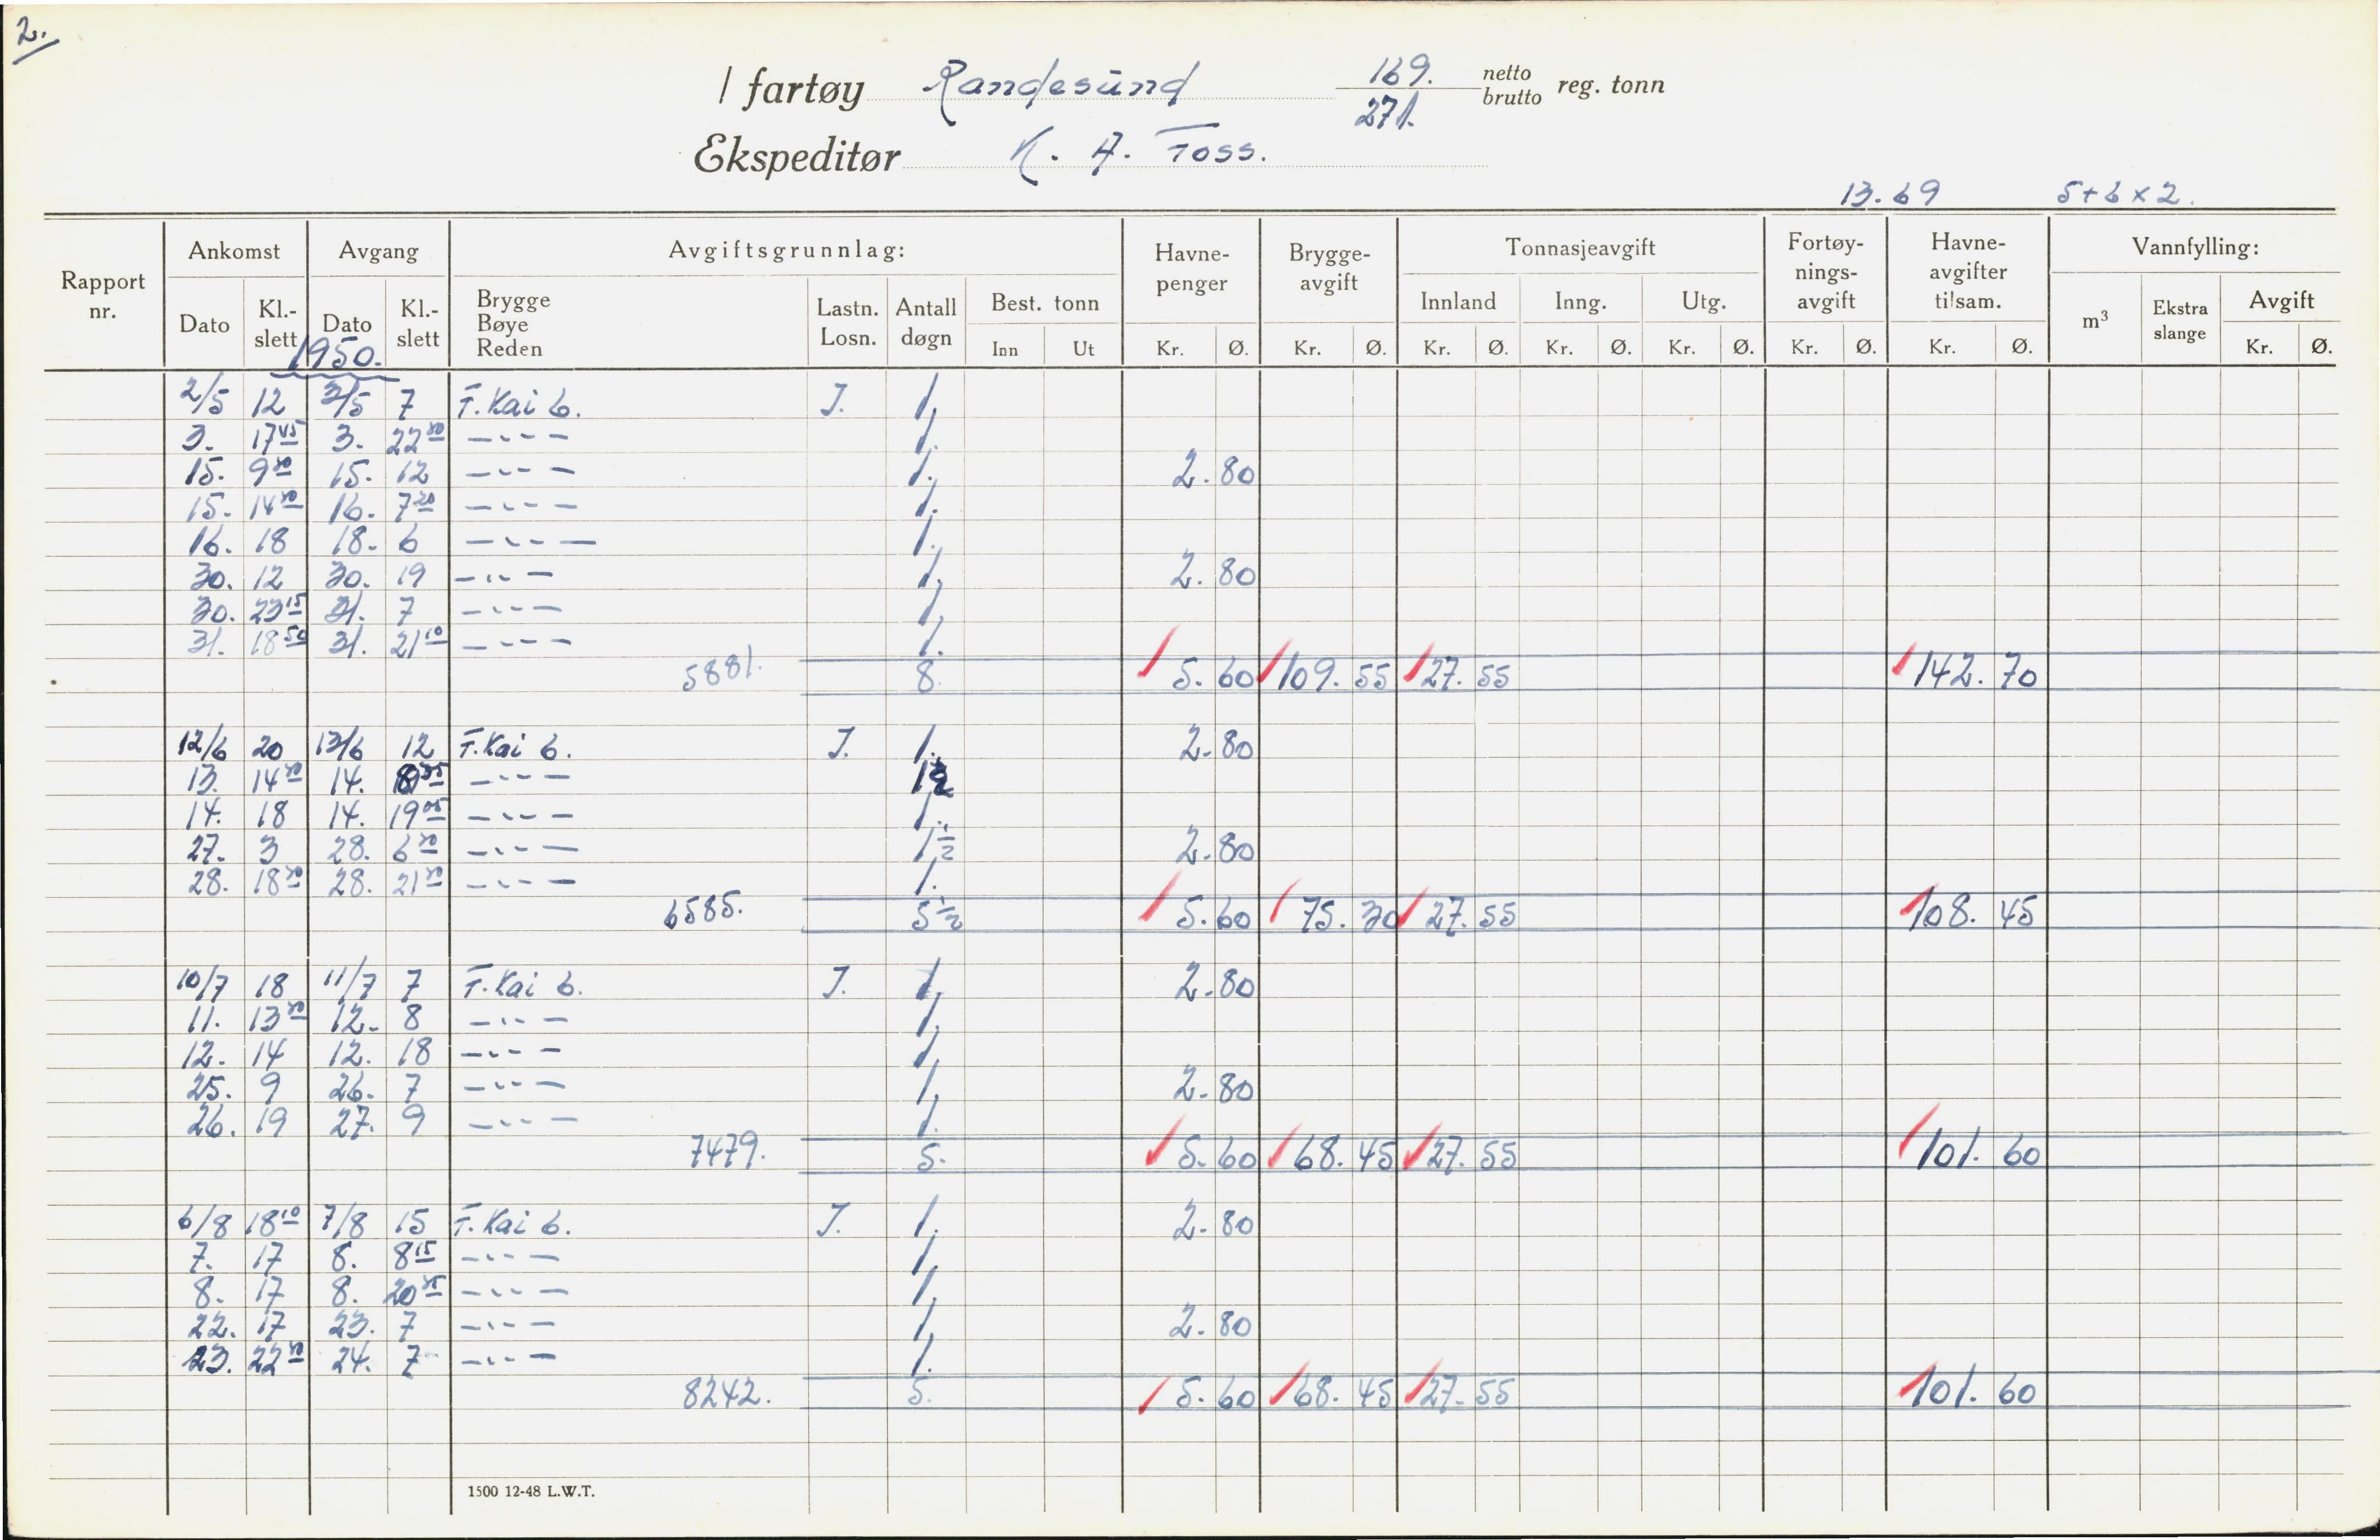 2.
/ fartøy Randesund 169. netto
271. brutto reg. tonn
Ekspeditør K. A. Foss.
13.69 5+6×2.
Rapport nr. Ankomst Avgang Avgiftsgrunnlag: Havne-penger Brygge-avgift Tonnasjeavgift Fortøy-nings-avgift Havne-avgifter tilsam. Vannfylling:
Dato Kl.-slett Dato Kl.-slett Brygge Bøye Reden Lastn. Losn. Antall døgn Best. tonn Innland Inng. Utg. m³ Ekstra slange Avgift
Inn Ut Kr. Ø. Kr. Ø. Kr. Ø. Kr. Ø. Kr. Ø. Kr. Ø. Kr. Ø. Kr. Ø.
1950.
2/5 12 3/5 7 F. Kai 6. J. 1.
3. 17 45 3. 22 30 -"- 1.
15. 9 30 15. 12 -"- 1. 2.80
15. 14 30 16. 7 20 -"- 1.
16. 18 18. 6 -"- 1.
30. 12 30. 19 -"- 1. 2.80
30. 23 15 31. 7 -"- 1.
31. 18 50 31. 21 10 -"- 1.
5881. 8. 5.60 109.55 27.55 142.70
12/6 20 13/6 12 F. Kai 6. J. 1. 2.80
13. 14 30 14. -"-
14. 18 14. 19 05 -"- 1.
27. 3 28. 6 30 -"- 1 1/2 2.80
28. 18 30 28. 21 30 -"- 1.
6585. 5 1/2 5.60 75.30 27.55 108.45
10/7 18 11/7 7 F. Kai 6. J. 1. 2.80
11. 13 30 12. 8 -"- 1.
12. 14 12. 18 -"- 1.
25. 9 26. 7 -"- 1. 2.80
26. 19 27. 9 -"- 1.
7479. 5. 5.60 68.45 27.55 101.60
6/8 18 10 7/8 15 F. Kai 6. J. 1. 2.80
7. 17 8. 8 15 -"- 1.
8. 17 8. 20 45 -"- 1.
22. 17 23. 7 -"- 1. 2.80
23. 22 30 24. 7 -"- 1.
8242. 5. 5.60 68.45 27.55 101.60
1500 12-48 L.W.T.